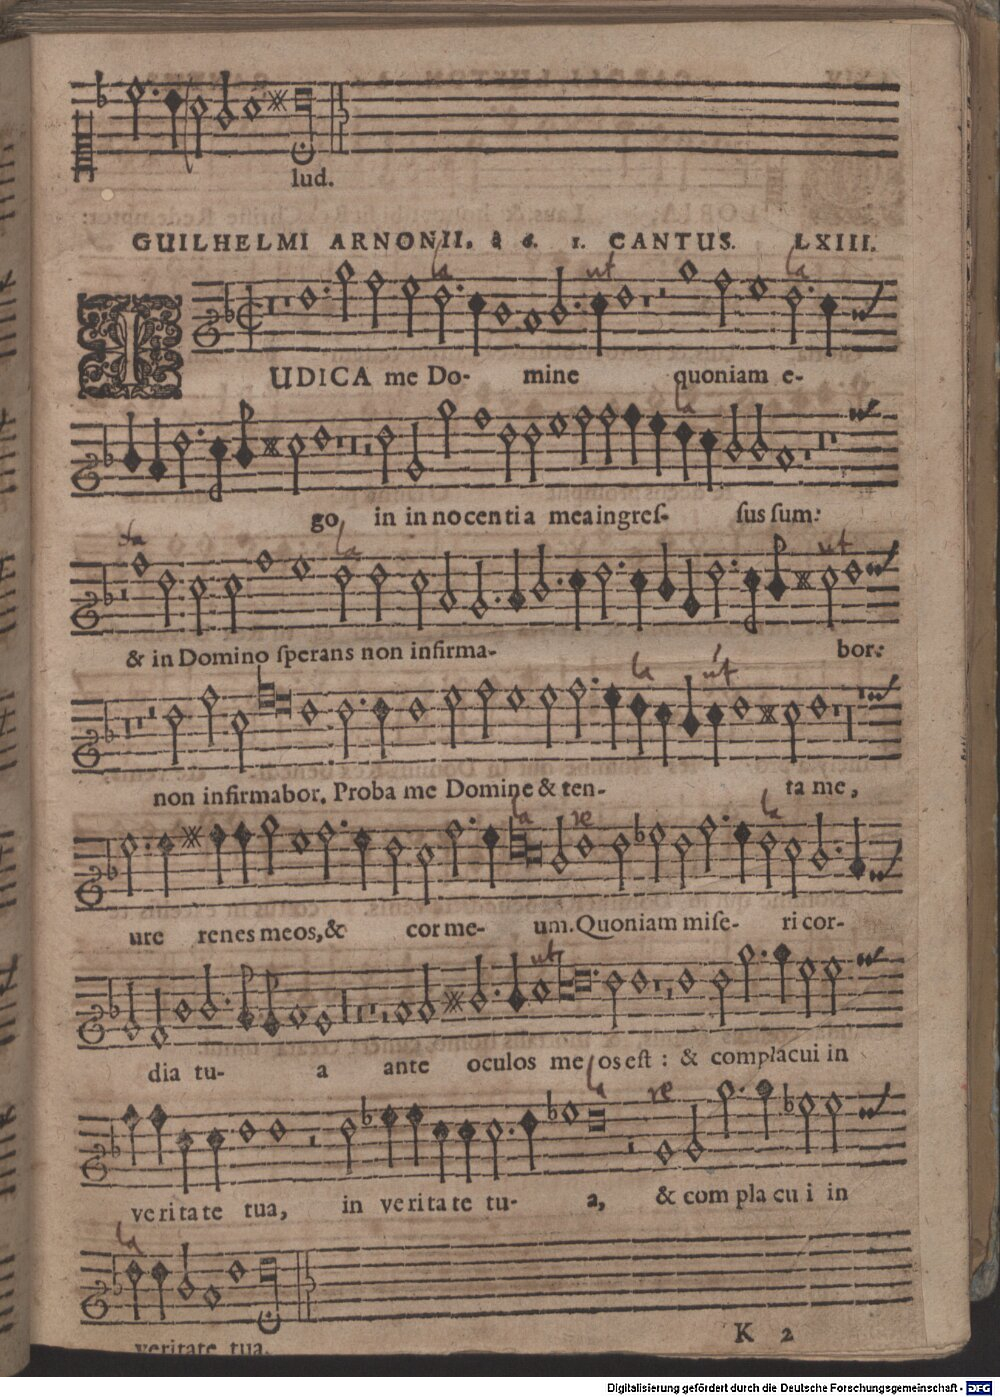 lud.
GUILHELMI ARNONII. à 6. 1. CANTUS. LXIII.
la ut la
IUDICA me Do- mine quoniam e-
la
go in in nocentia mea ingreſ- ſus ſum:
fa la ut
& in Domino ſperans non infirma- bor:
la ut
non infirmabor. Proba me Domine & ten- ta me,
la re la
ure renes meos, & cor me- um. Quoniam miſe- ri cor-
ut
dia tu- a ante oculos me os eſt : & complacui in
la re
veritate tua, in veritate tu- a, & com pla cu i in
la
veritate tua.
K 2
Digitalisierung gefördert durch die Deutsche Forschungsgemeinschaft - DFG